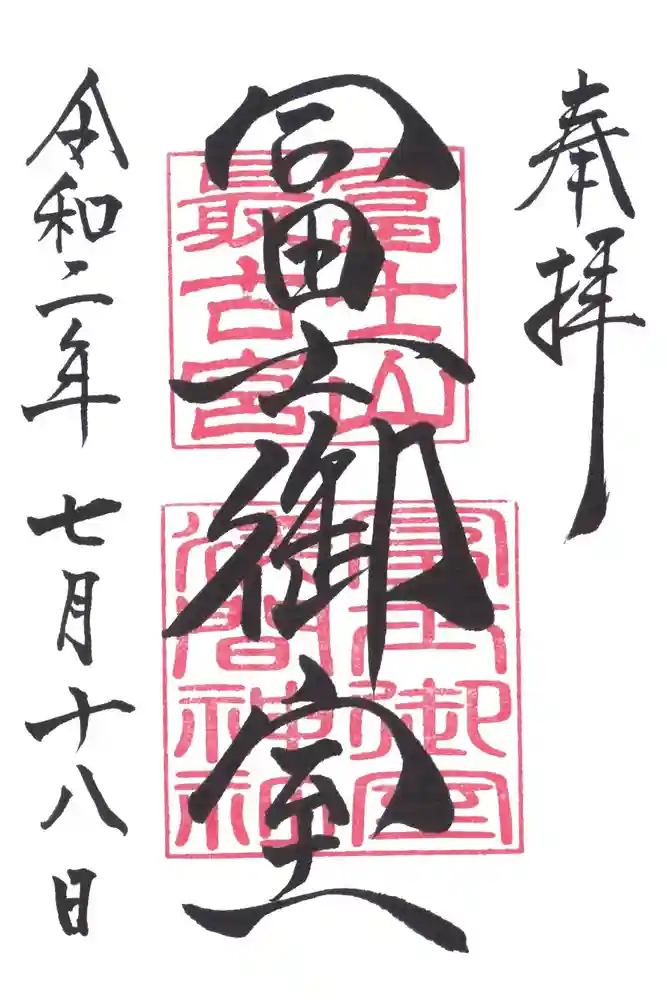 奉拝
冨士御室
冨士山
最古宮
冨士御室
淺間神社
令和二年七月十八日